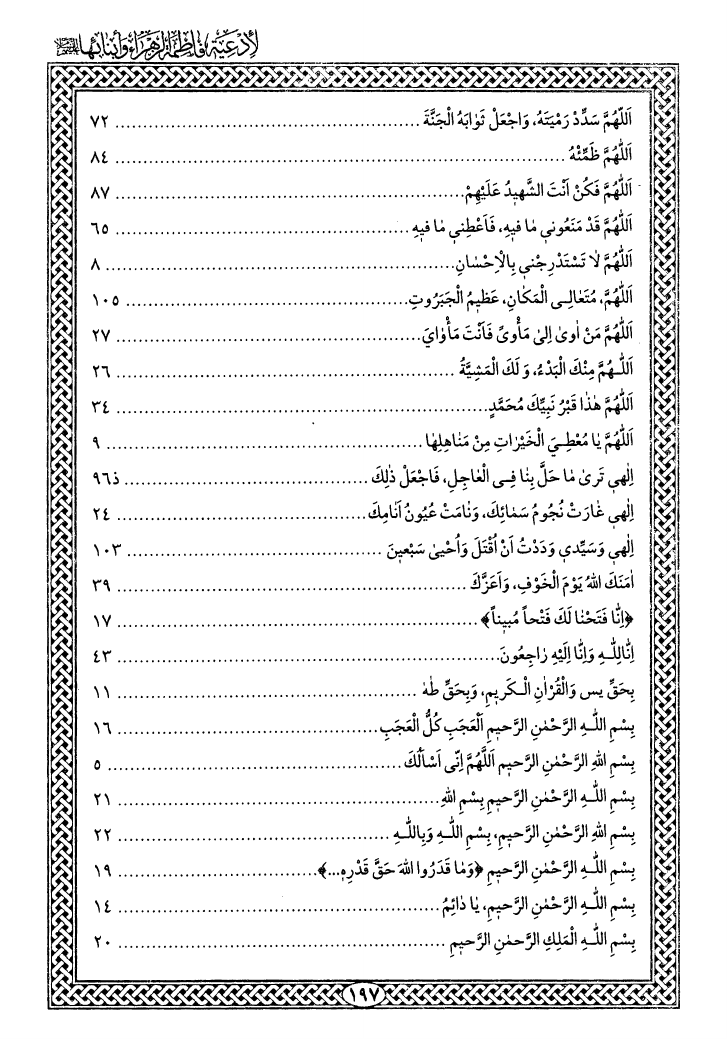 لأدعية فاطمة الزهراء وأبنائها
اَللّٰهُمَّ سَدِّدْ رَمْيَتَهُ، وَاجْعَلْ ثَوٰابَهُ الْجَنَّةَ ........ ٧٢
اَللّٰهُمَّ ظَمِّئْهُ ........ ٨٤
اَللّٰهُمَّ فَكُنْ اَنْتَ الشَّهيدُ عَلَيْهِمْ ........ ٨٧
اَللّٰهُمَّ قَدْ مَنَعُوني مٰا فيهِ، فَاَعْطِني مٰا فيهِ ........ ٦٥
اَللّٰهُمَّ لٰا تَسْتَدْرِجْني بِالْاِحْسٰانِ ........ ٨
اَللّٰهُمَّ، مُتَعٰالِـى الْمَكٰانِ، عَظيمُ الْجَبَرُوتِ ........ ١٠٥
اَللّٰهُمَّ مَنْ اٰوىٰ اِلىٰ مَأْوىً فَاَنْتَ مَأْوٰايَ ........ ٢٧
اَللّٰـهُمَّ مِنْكَ الْبَدْءُ، وَ لَكَ الْمَشِيَّةُ ........ ٢٦
اَللّٰهُمَّ هٰذٰا قَبْرُ نَبِيِّكَ مُحَمَّدٍ ........ ٣٤
اَللّٰهُمَّ يٰا مُعْطِـيَ الْخَيْرٰاتِ مِنْ مَنٰاهِلِهٰا ........ ٩
اِلٰهي تَرىٰ مٰا حَلَّ بِنٰا فِـى الْعٰاجِلِ، فَاجْعَلْ ذٰلِكَ ........ ذ٩٦
اِلٰهي غٰارَتْ نُجُومُ سَمٰائِكَ، وَنٰامَتْ عُيُونُ اَنٰامِكَ ........ ٢٤
اِلٰهي وَسَيِّدي وَدَدْتُ اَنْ اُقْتَلَ وَاُحْيىٰ سَبْعينَ ........ ١٠٣
اٰمَنَكَ اللّٰهُ يَوْمَ الْخَوْفِ، وَاَعَزَّكَ ........ ٣٩
﴿اِنّٰا فَتَحْنٰا لَكَ فَتْحاً مُبيناً﴾ ........ ١٧
اِنّٰالِلّٰـهِ وَاِنّٰا اِلَيْهِ رٰاجِعُونَ ........ ٤٣
بِحَقِّ يس وَالْقُرْاٰنِ الْـكَريمِ، وَبِحَقِّ طٰهٰ ........ ١١
بِسْمِ اللّٰـهِ الرَّحْمٰنِ الرَّحيمِ اَلْعَجَبِ كُلُّ الْعَجَبِ ........ ١٦
بِسْمِ اللّٰهِ الرَّحْمٰنِ الرَّحيمِ اَللّٰهُمَّ اِنّى اَسْاَلُكَ ........ ٥
بِسْمِ اللّٰـهِ الرَّحْمٰنِ الرَّحيمِ بِسْمِ اللّٰهِ ........ ٢١
بِسْمِ اللّٰهِ الرَّحْمٰنِ الرَّحيمِ، بِسْمِ اللّٰـهِ وَبِاللّٰـهِ ........ ٢٢
بِسْمِ اللّٰـهِ الرَّحْمٰنِ الرَّحيمِ ﴿وَمٰا قَدَرُوا اللّٰهَ حَقَّ قَدْرِهِ...﴾ ........ ١٩
بِسْمِ اللّٰـهِ الرَّحْمٰنِ الرَّحيمِ، يٰا دٰائِمُ ........ ١٤
بِسْمِ اللّٰهِ الْمَلِكِ الرَّحْمٰنِ الرَّحيمِ ........ ٢٠
١٩٧